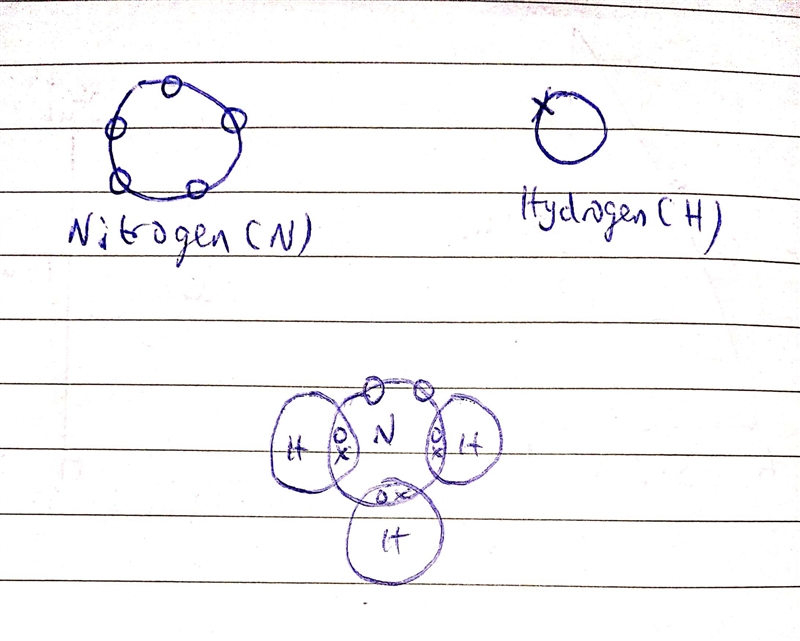 x
Nitrogen (N)
Hydrogen (H)
H o x N o x H
o x
H